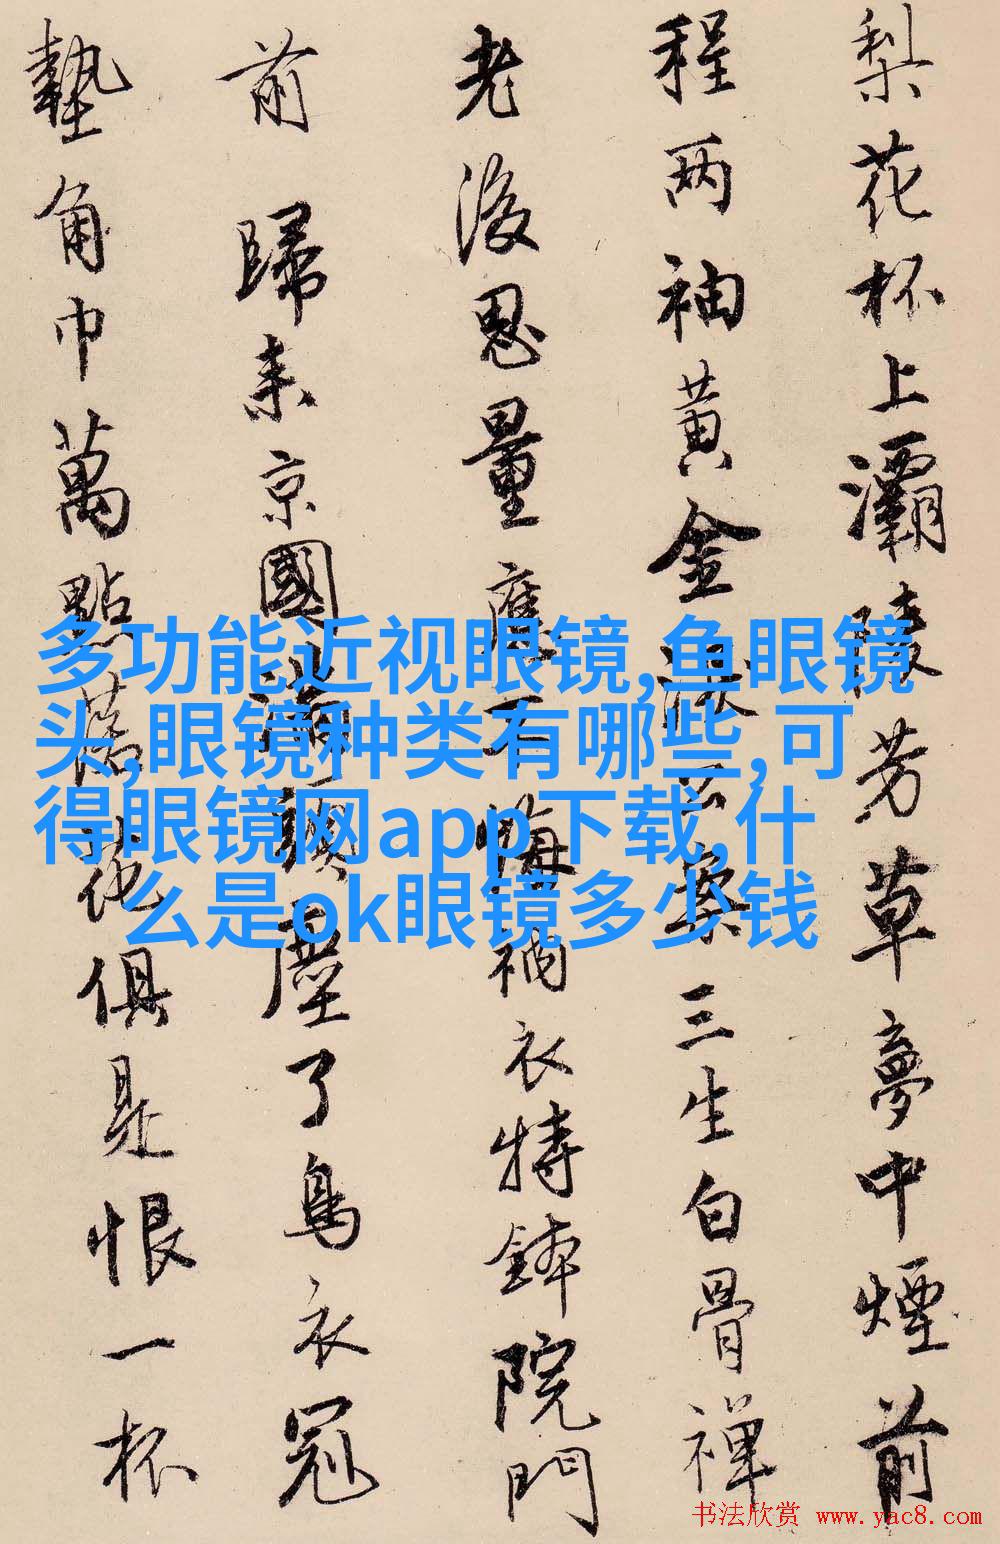 梨花杯上灞陵芳草夢中煙前
程两袖黄金淚公案三生白骨禪
老後思量應不悔衲衣持鉢院門
前歸来京國滿頭塵了烏衣冠
墊角巾萬點落花俱是恨一杯
多功能近视眼镜,鱼眼镜
头,眼镜种类有哪些,可
得眼镜网app下载,什
么是ok眼镜多少钱
书法欣赏 www.yac8.com